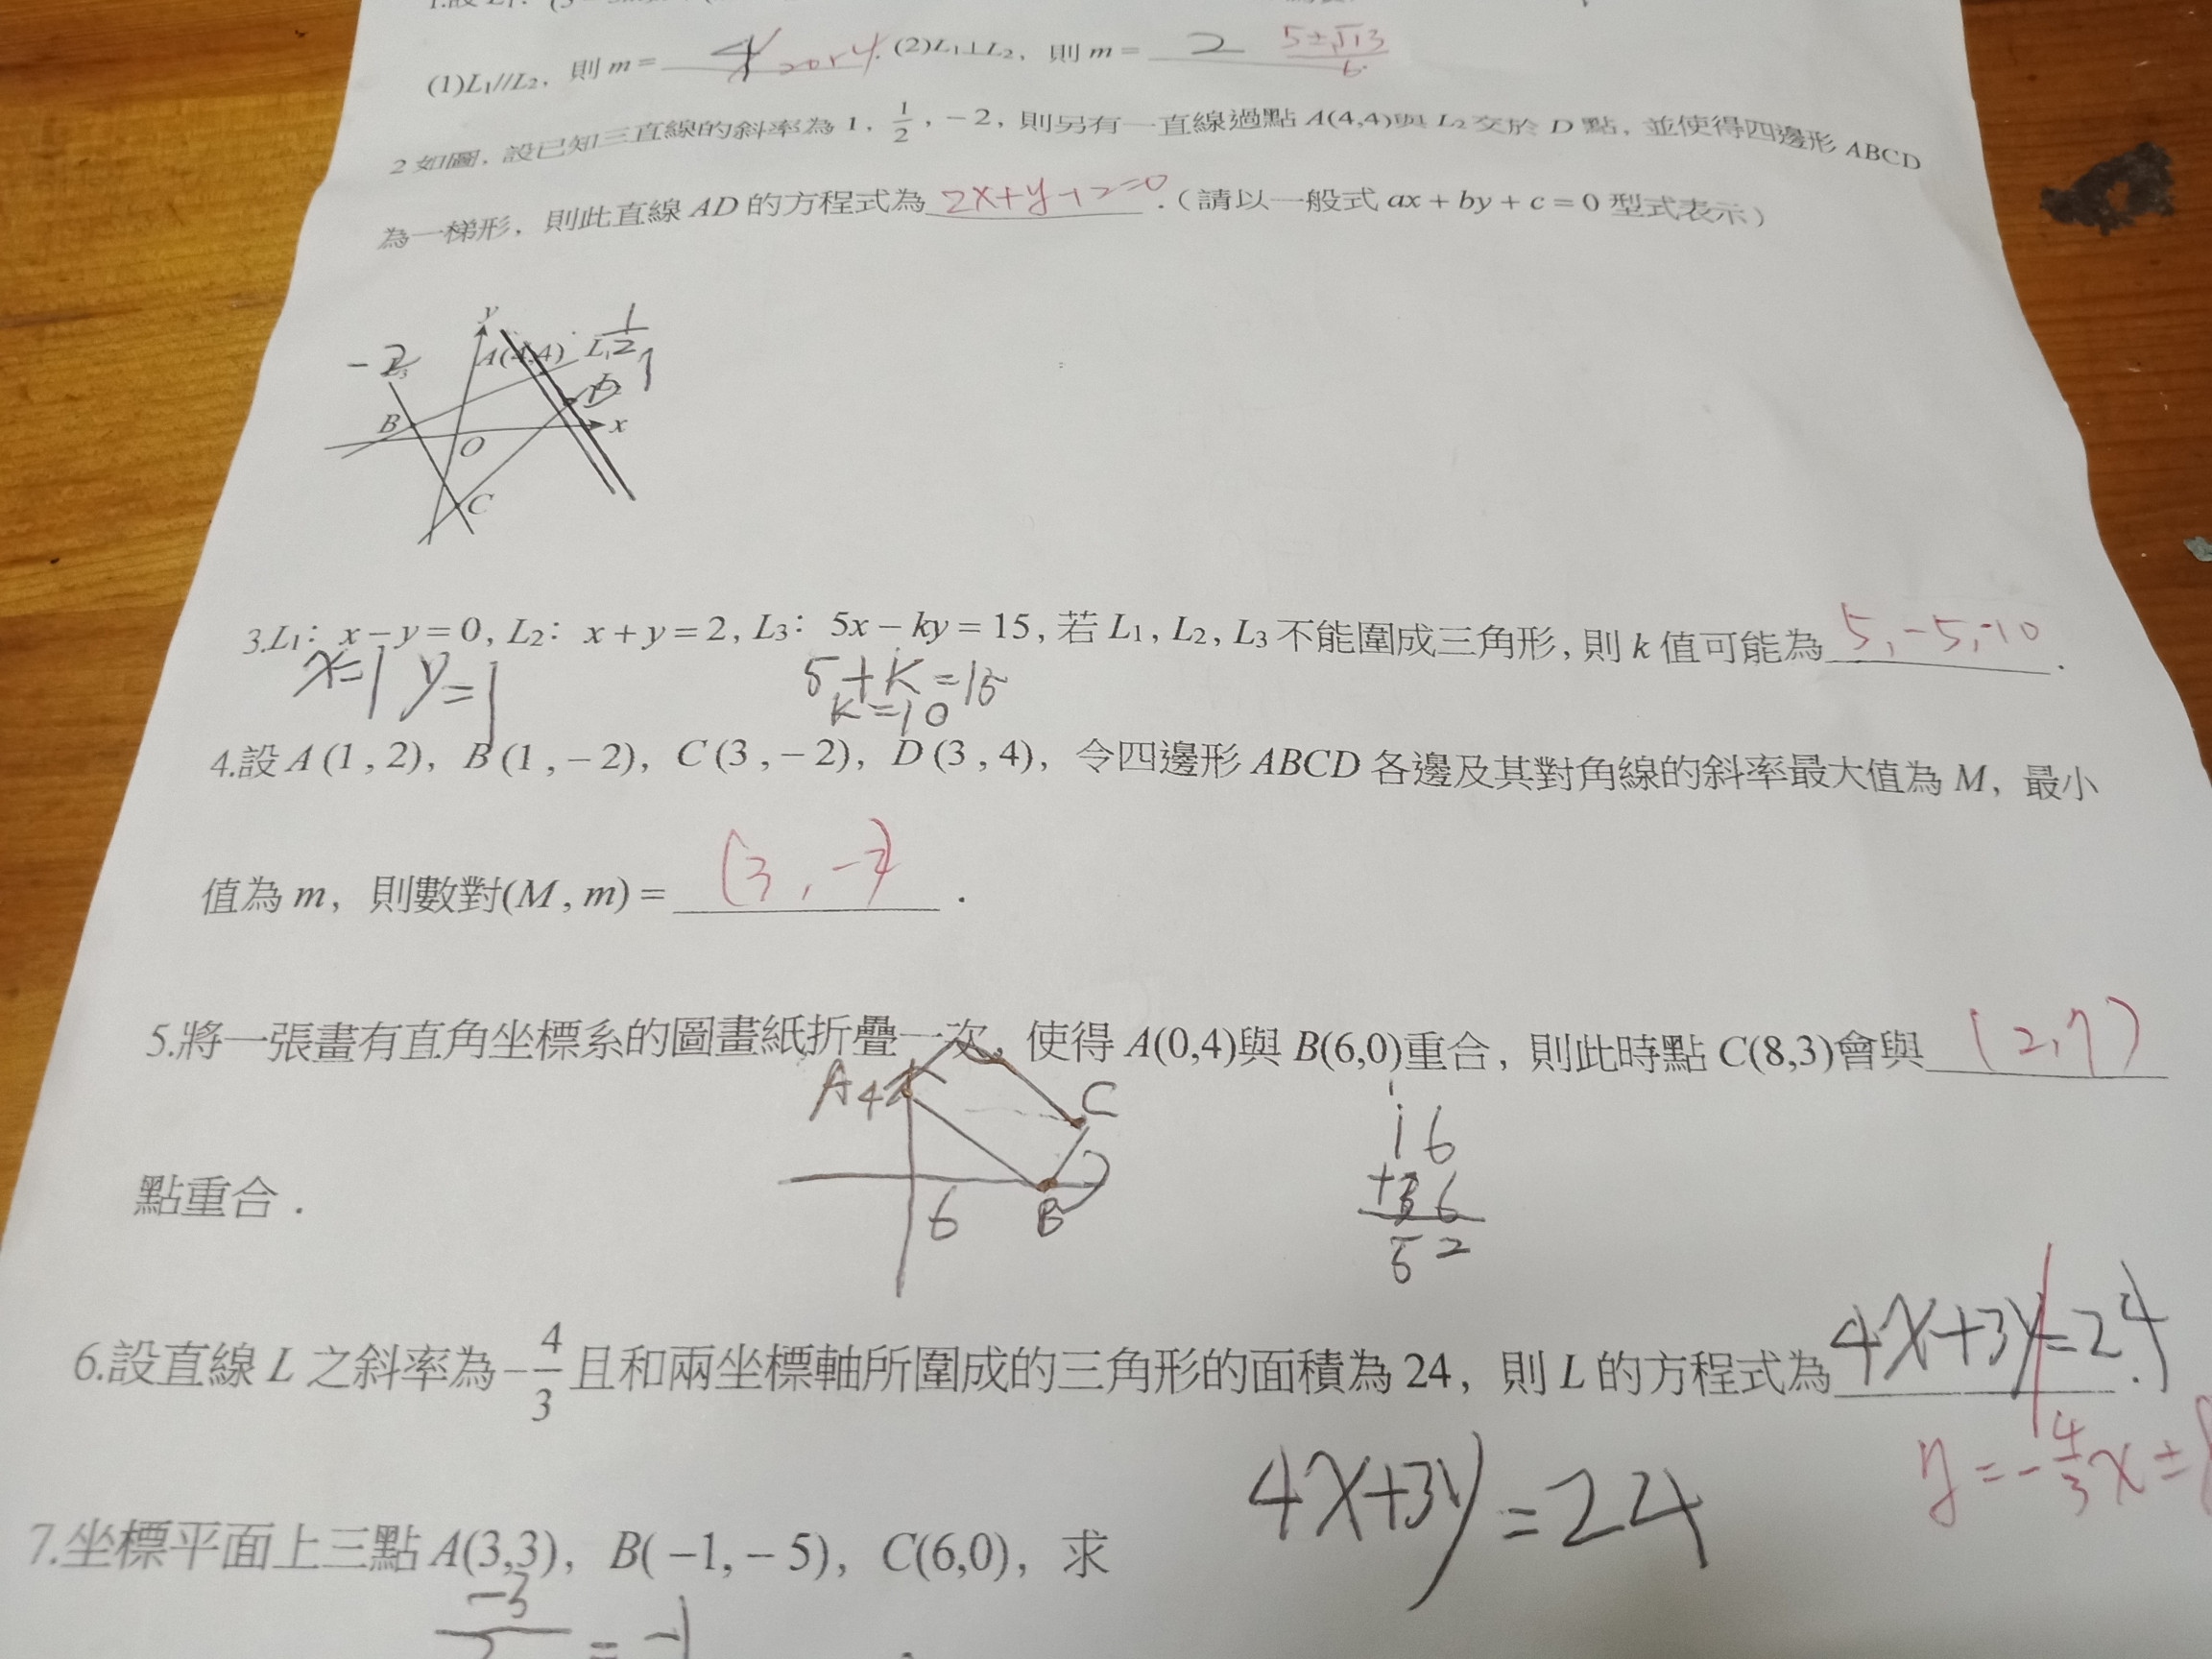 (1)L₁//L₂, 則 m = 4 2or4. (2)L₁⊥L₂, 則 m = 2 5±√13/6
2 如圖, 設已知三直線的斜率為 1, 1/2, −2, 則另有一直線過點 A(4,4)與 L₂ 交於 D 點, 並使得四邊形 ABCD
為一梯形, 則此直線 AD 的方程式為 .(請以一般式 ax + by + c = 0 型式表示)
y
−2 A(4,4) L₁ 1/2
L₃ 1
B D
O x
C
3.L₁: x − y = 0, L₂: x + y = 2, L₃: 5x − ky = 15, 若 L₁, L₂, L₃ 不能圍成三角形, 則 k 值可能為 5, −5, −10 .
x=1 y=1 5+K=15
K=10
4.設 A (1 , 2), B (1 , − 2), C (3 , − 2), D (3 , 4), 令四邊形 ABCD 各邊及其對角線的斜率最大值為 M, 最小
值為 m, 則數對(M , m) = .
5.將一張畫有直角坐標系的圖畫紙折疊一次, 使得 A(0,4)與 B(6,0)重合, 則此時點 C(8,3)會與 (2,7)
A 4 C
16
+36
52
6 B
點重合 .
6.設直線 L 之斜率為 −4/3 且和兩坐標軸所圍成的三角形的面積為 24, 則 L 的方程式為 4x+3y=24 .
y = −4/3 x ±
4x+3y=24
7.坐標平面上三點 A(3,3), B( −1, − 5), C(6,0), 求
−3
= −1